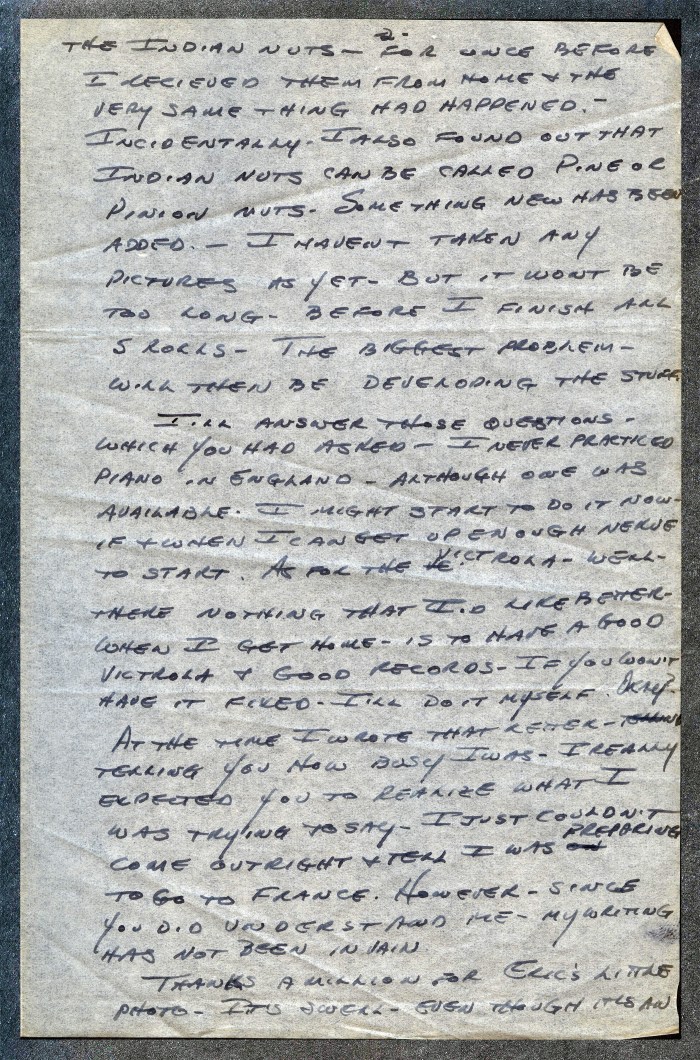 2-
THE INDIAN NUTS - FOR ONCE BEFORE
I RECIEVED THEM FROM HOME & THE
VERY SAME THING HAD HAPPENED. -
INCIDENTALLY - I ALSO FOUND OUT THAT
INDIAN NUTS CAN BE CALLED PINE OR
PINION NUTS - SOMETHING NEW HAS BEEN
ADDED. - I HAVENT TAKEN ANY
PICTURES AS YET - BUT IT WONT BE
TOO LONG - BEFORE I FINISH ALL
5 ROLLS - THE BIGGEST PROBLEM -
WILL THEN BE DEVELOPING THE STUFF.
I'LL ANSWER THOSE QUESTIONS -
WHICH YOU HAD ASKED - I NEVER PRACTICED
PIANO IN ENGLAND - ALTHOUGH ONE WAS
AVAILABLE. I MIGHT START TO DO IT NOW -
IF & WHEN I CAN GET UP ENOUGH NERVE
TO START. AS FOR THE VICTROLA - WELL -
THERE NOTHING THAT I'D LIKE BETTER -
WHEN I GET HOME - IS TO HAVE A GOOD
VICTROLA & GOOD RECORDS - IF YOU WON'T
HAVE IT FIXED - I'LL DO IT MYSELF. OKAY?
AT THE TIME I WROTE THAT LETTER -
TELLING YOU HOW BUSY I WAS - I REALLY
EXPECTED YOU TO REALIZE WHAT I
WAS TRYING TO SAY - I JUST COULDN'T
COME OUTRIGHT & TELL I WAS PREPARING
TO GO TO FRANCE. HOWEVER - SINCE
YOU DID UNDERSTAND ME - MY WRITING
HAS NOT BEEN IN VAIN
THANKS A MILLION FOR ERIC'S LITTLE
PHOTO - ITS SWELL - EVEN THOUGH ITS AN